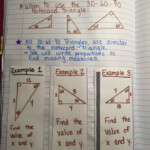 When to use the 30-60-90
Notecard Triangle:
★ All 30-60-90 Triangles are similar
to the notecard triangle.
- We will write proportions to
find missing measures.
Example 1
Example 2
Example 3
Find the
value of
x and y.
Find the
value of
x and y.
Find
the
value of
x and y.